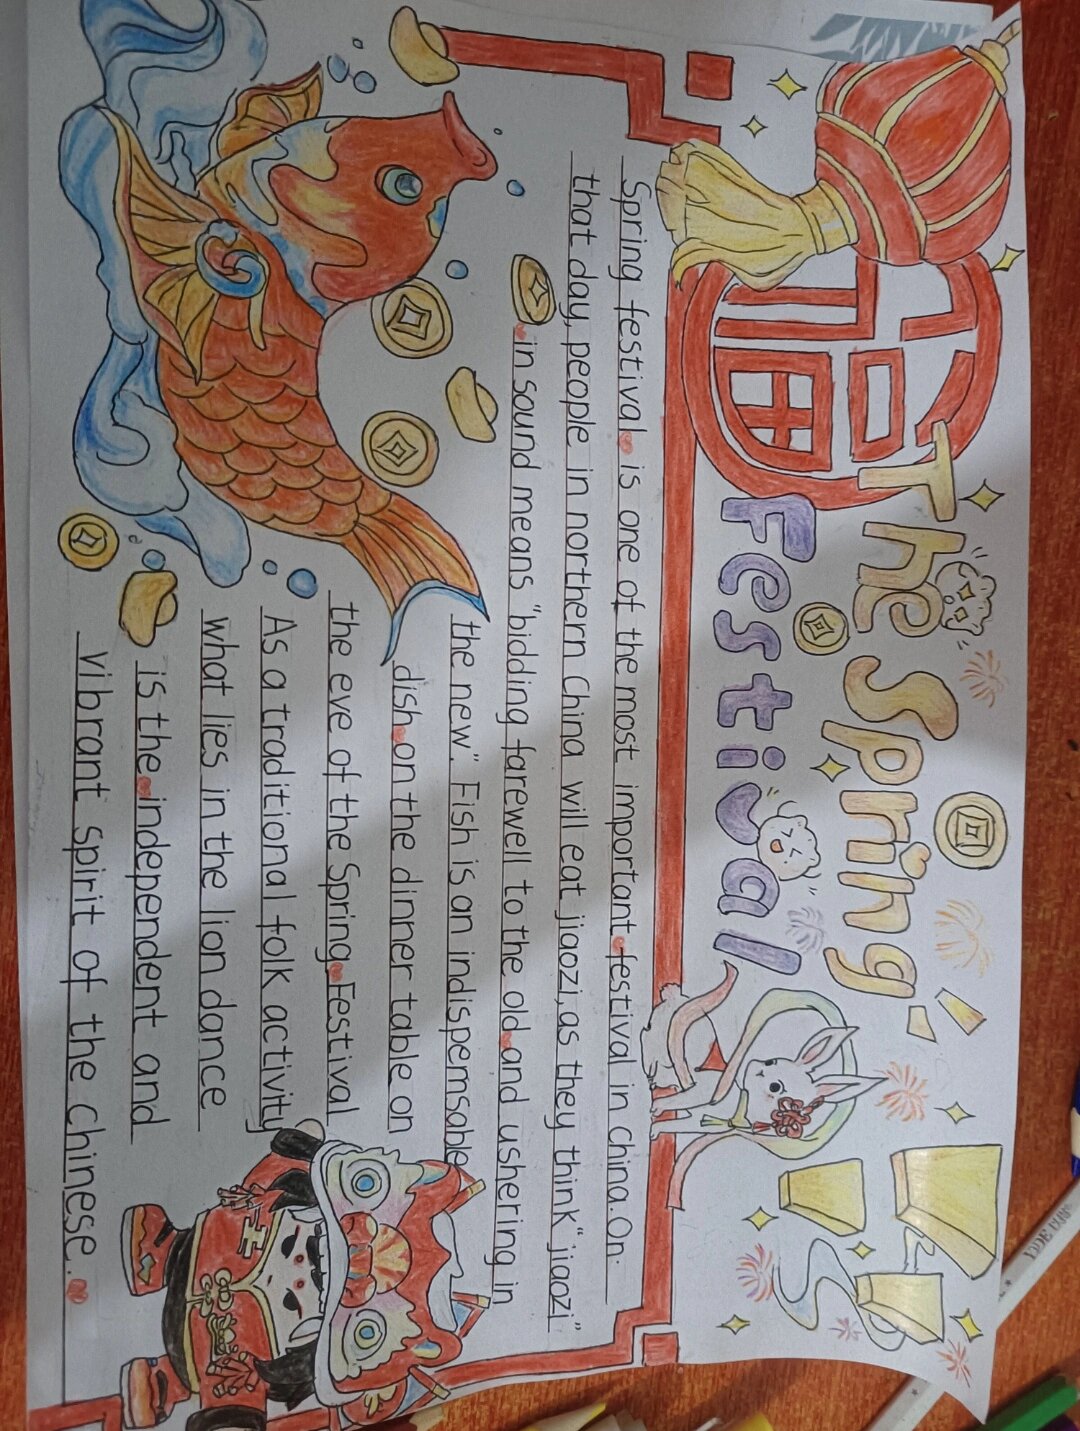 福
The Spring
Festival
Spring festival is one of the most important festival in china. On
that day, people in northern China will eat jiaozi, as they think "jiaozi"
in sound means "bidding farewell to the old and ushering in
the new". Fish is an indispemsable
dish on the dinner table on
the eve of the Spring Festival
As a traditional folk activity
what lies in the lion dance
is the independent and
vibrant spirit of the Chinese.